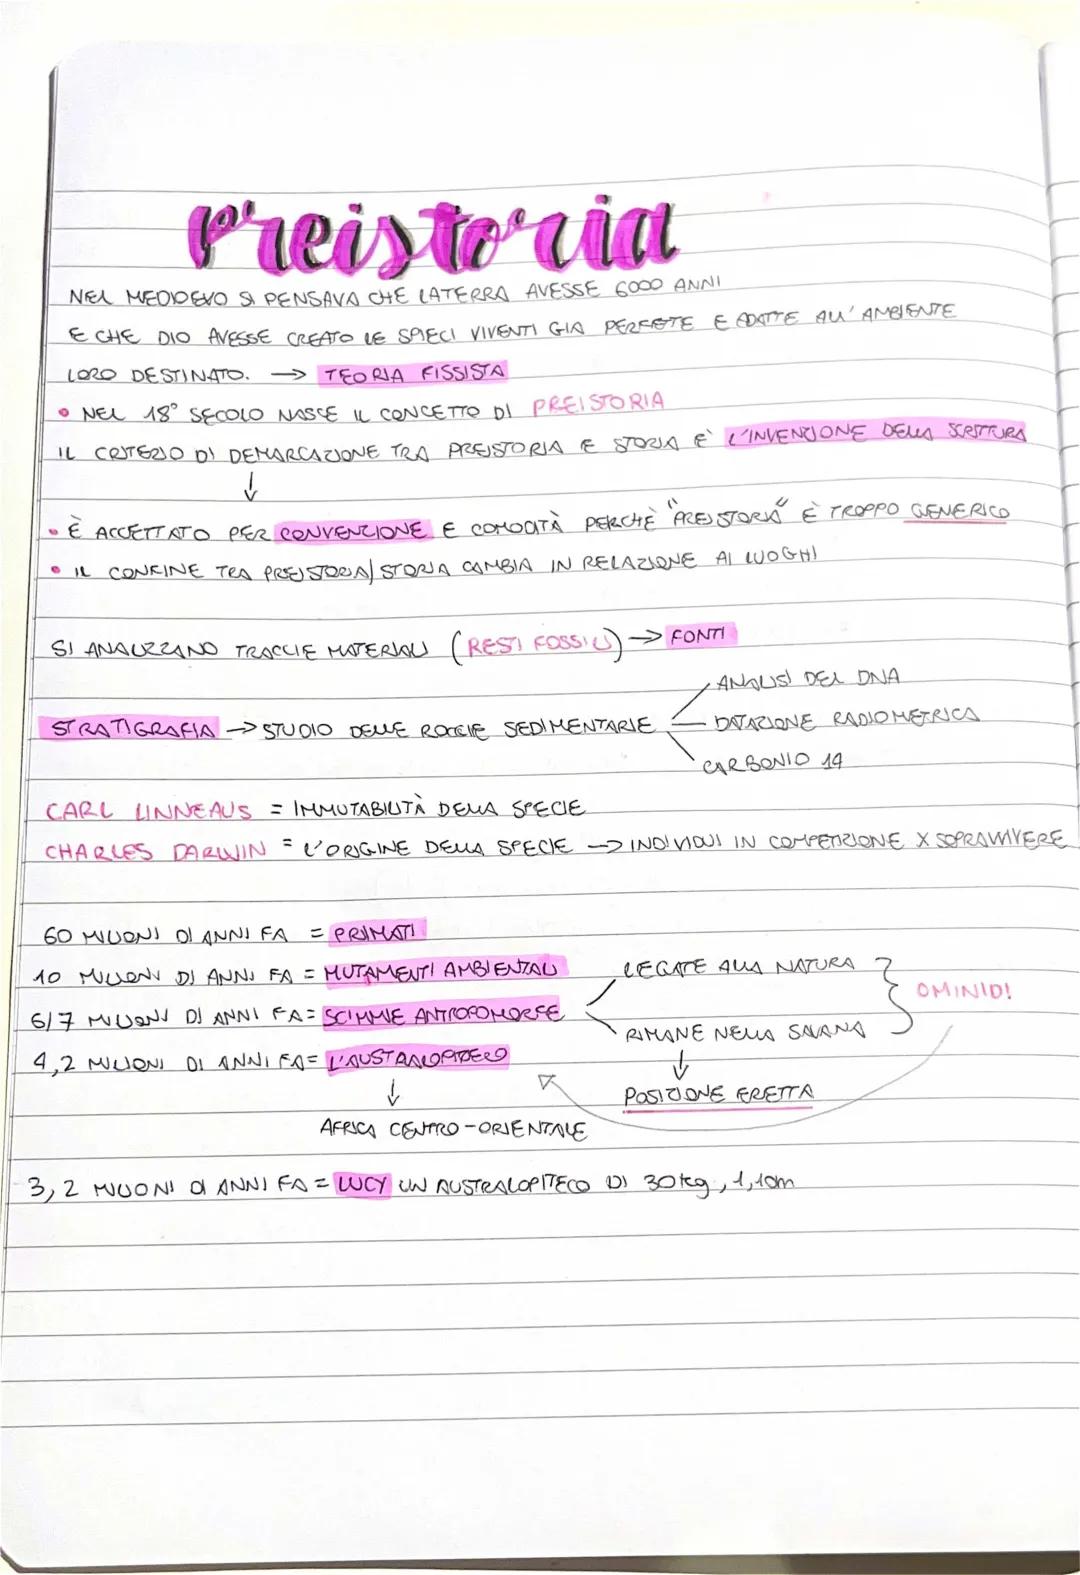 preistoria
NEL MEDIOEVO SI PENSAVA CHE LA TERRA AVESSE 6000 ANNI
E CHE DIO AVESSE CREATO LE SPIECI VIVENTI GIA PERFETE E ADATTE ALL'AMBIENTE
LORO DESTINATO. → TEORIA FISSISTA
• NEL 18° SECOLO NASCE IL CONCETTO DI PREISTORIA
IL CRITERIO DI DEMARCAZIONE TRA PREISTORIA E STORIA E' L'INVENZIONE DELLA SCRITTURA
↓
• È ACCETTATO PER CONVENZIONE E COMODITÀ PERCHÈ "PREISTORIA" È TROPPO GENERICO
• IL CONFINE TRA PREISTORIA/STORIA CAMBIA IN RELAZIONE AI LUOGHI
SI ANALIZZANO TRACCIE MATERIALI (RESTI FOSSILI) → FONTI
ANALISI DEL DNA
STRATIGRAFIA → STUDIO DELLE ROCCIE SEDIMENTARIE DATAZIONE RADIOMETRICA
CARBONIO 14
CARL LINNEAUS = IMMUTABILITÀ DELLA SPECIE
CHARLES DARWIN = L'ORIGINE DELLA SPECIE → INDIVIDUI IN COMPETIZIONE X SOPRAVVIVERE
60 MILIONI DI ANNI FA = PRIMATI
10 MILIONI DI ANNI FA = MUTAMENTI AMBIENTALI LEGATE ALLA NATURA
OMINIDI
6/7 MILIONI DI ANNI FA = SCIMMIE ANTROPOMORFE RIMANE NELLA SAVANA
4,2 MILIONI DI ANNI FA = ↓
↓ POSIZIONE ERETTA
AFRICA CENTRO-ORIENTALE
3,2 MILIONI DI ANNI FA = LUCY UN AUSTRALOPITECO DI 30kg, 1,10m